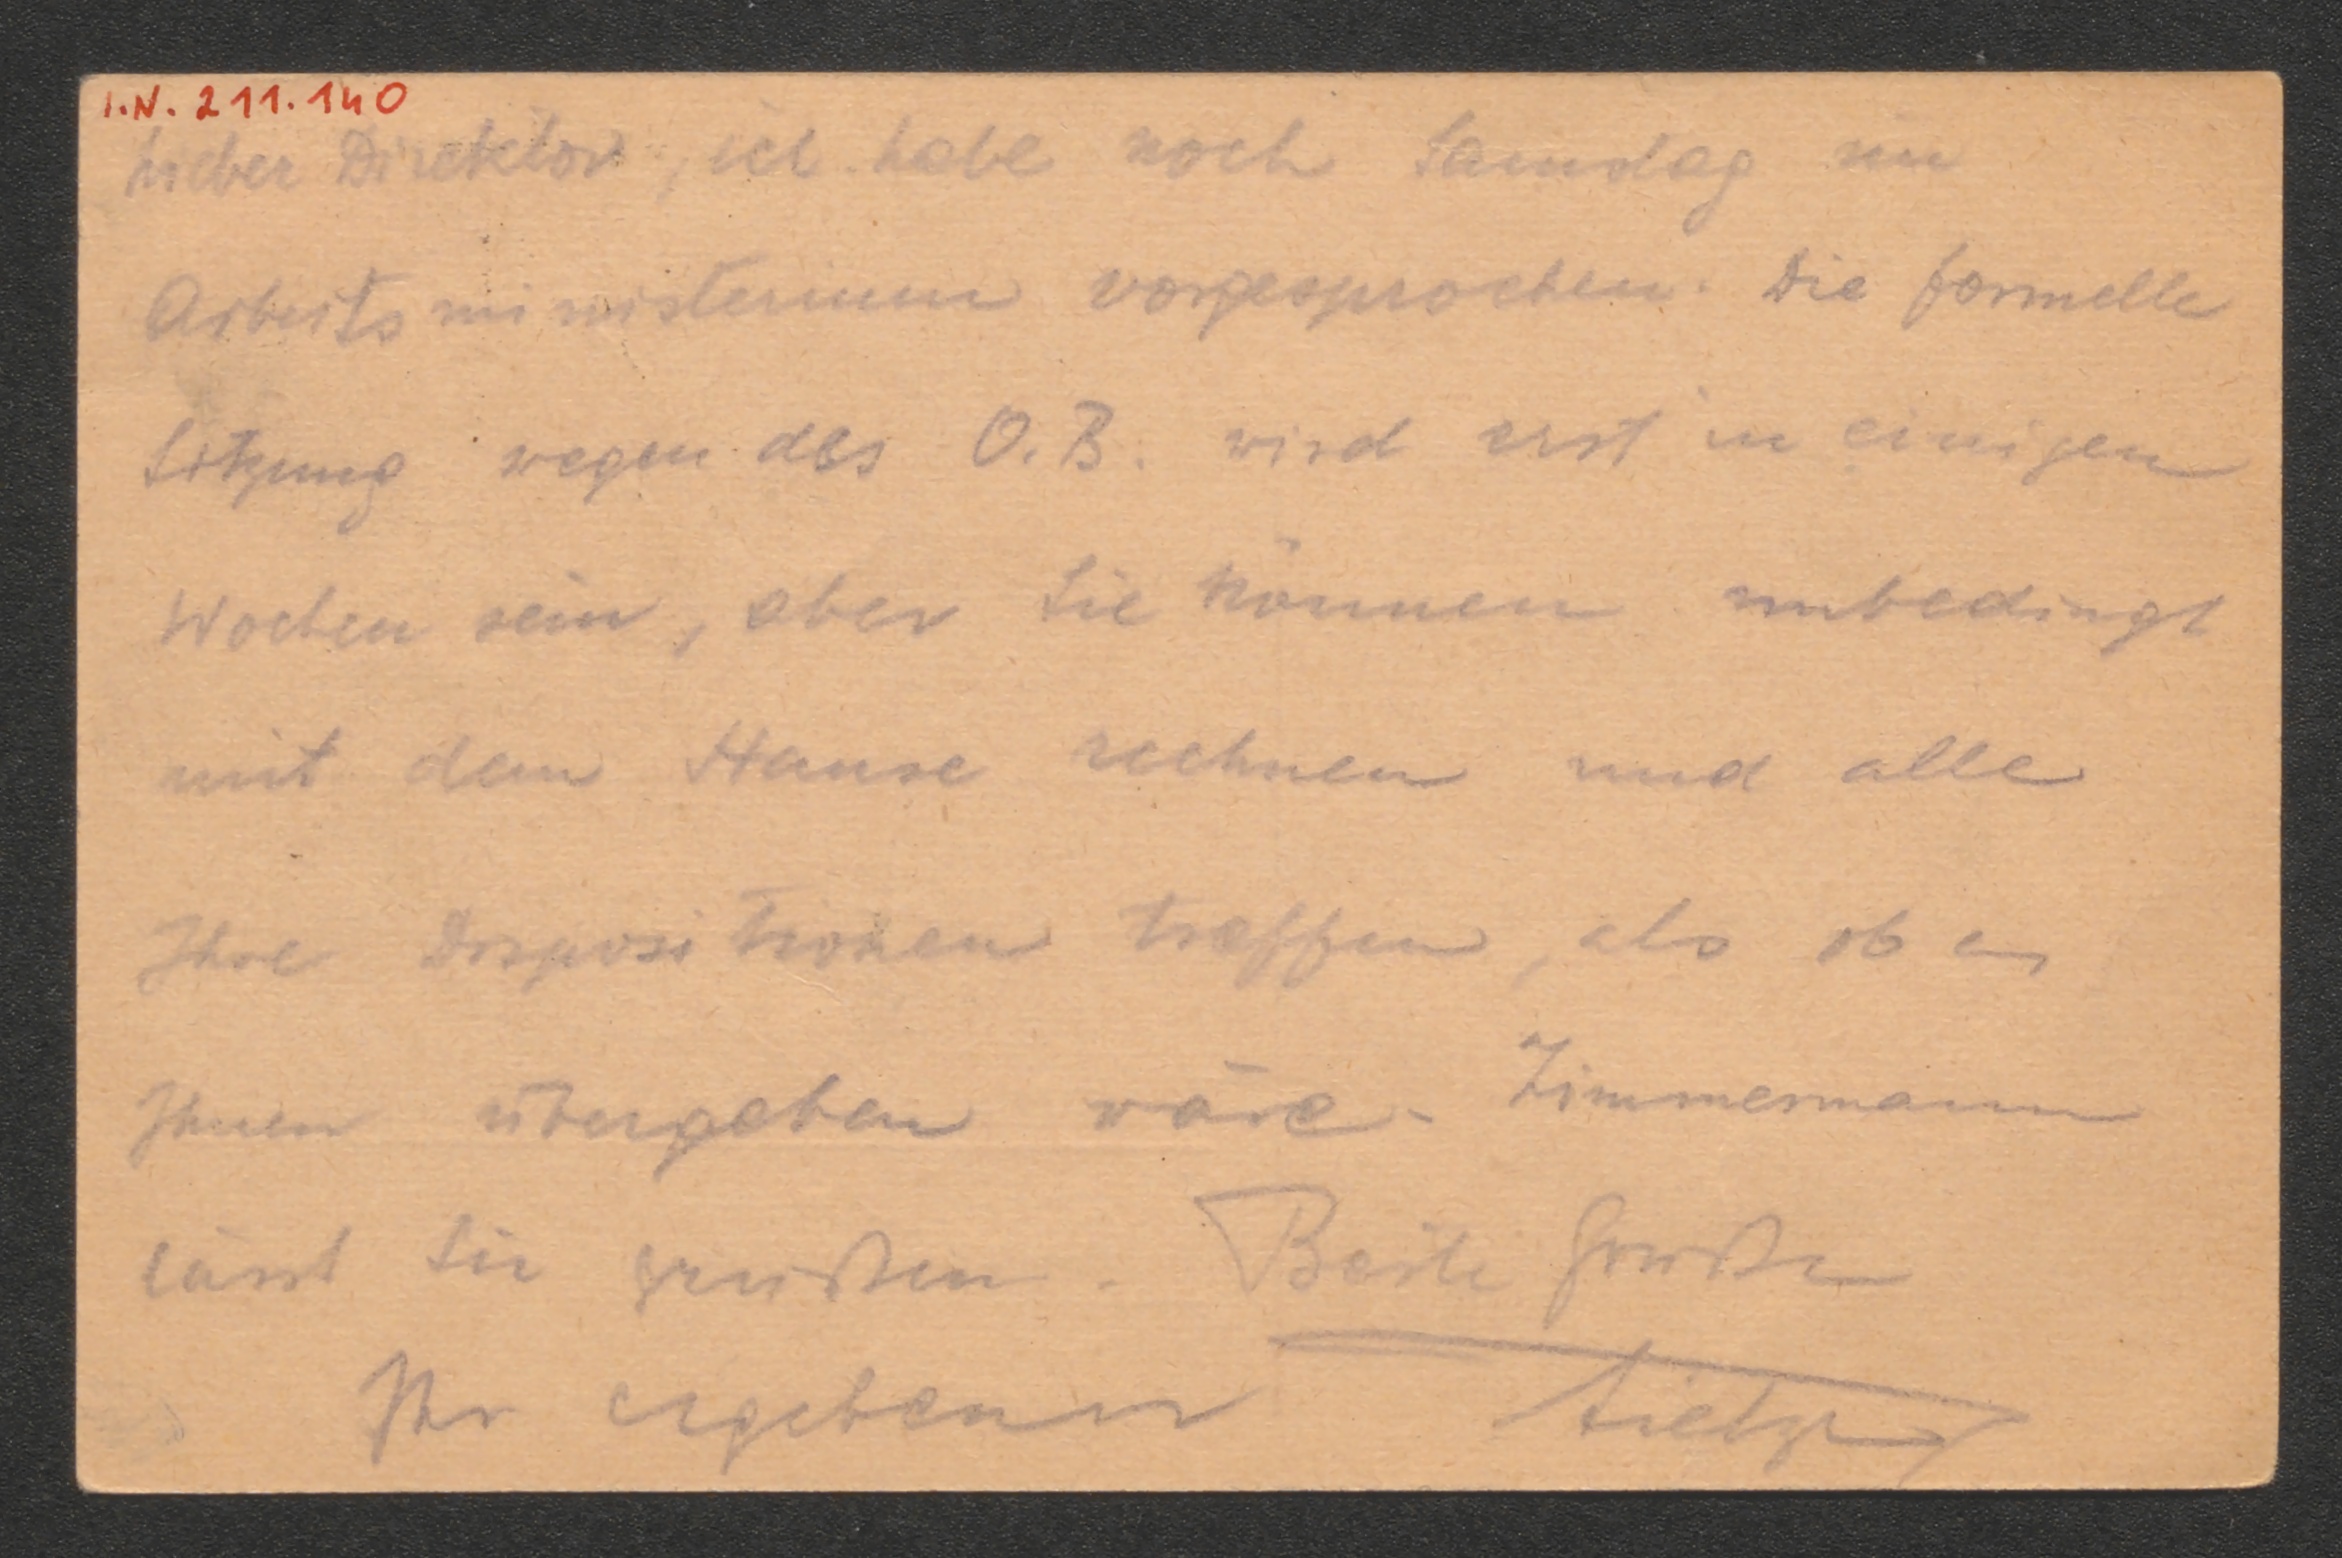 I.N. 211.140
Lieber Direktor, ich habe noch Samstag im
Arbeitsministerium vorgesprochen. Die formelle
Sitzung wegen des O.B. wird erst in einigen
Wochen sein, aber Sie können unbedingt
mit dem Hause rechnen und alle
Ihre Dispositionen treffen, als ob es
Ihnen übergeben wäre. Zimmermann
lässt Sie grüßen. Beste Grüße
Ihr ergebener